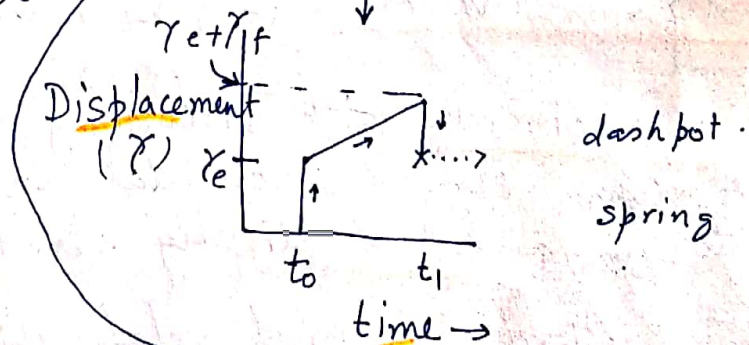 γe+γf
Displacement
(γ)
γe
dashpot.
spring
t₀
t₁
time →